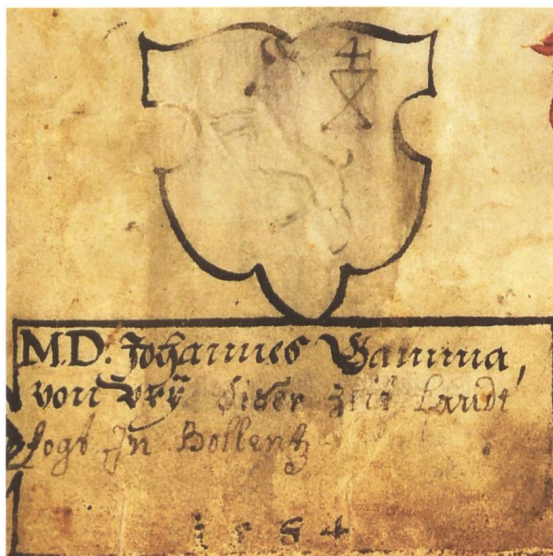 M.D. Johannes Gamma,
von Vrÿ diser Zeit Landt
fogt In Bollentz
1 5 8 4